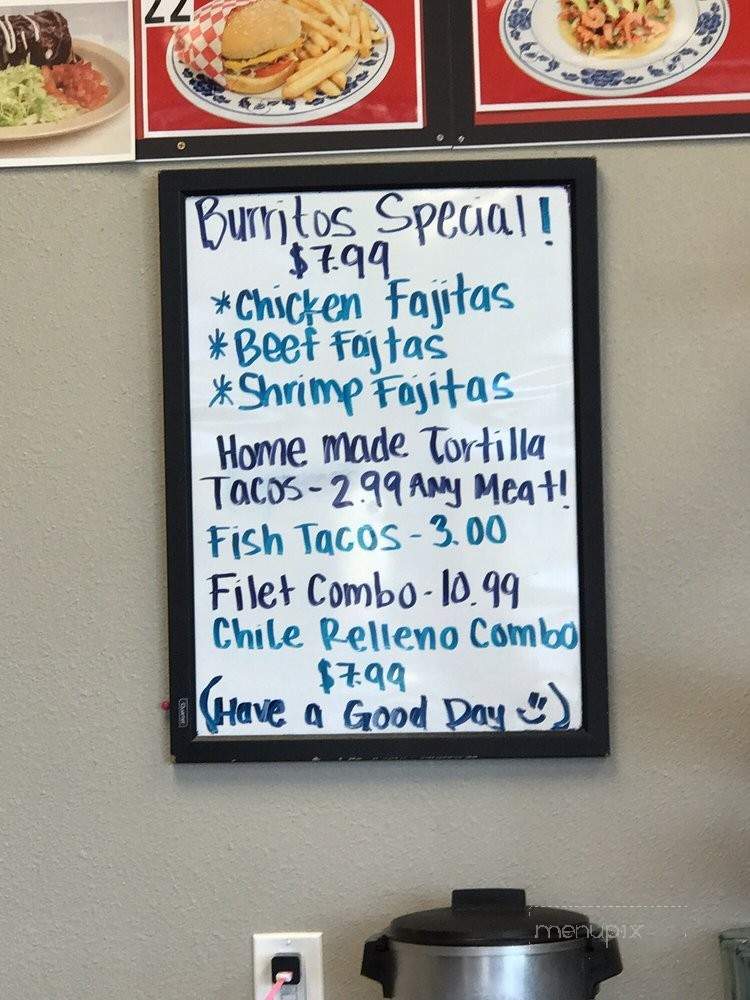 22
Burritos Special!
$7.99
*Chicken Fajitas
*Beef Fajtas
*Shrimp Fajitas
Home made Tortilla
Tacos - 2.99 Any Meat!
Fish Tacos - 3.00
Filet Combo - 10.99
Chile Relleno Combo
$7.99
(Have a Good Day )
Quartet
menupix